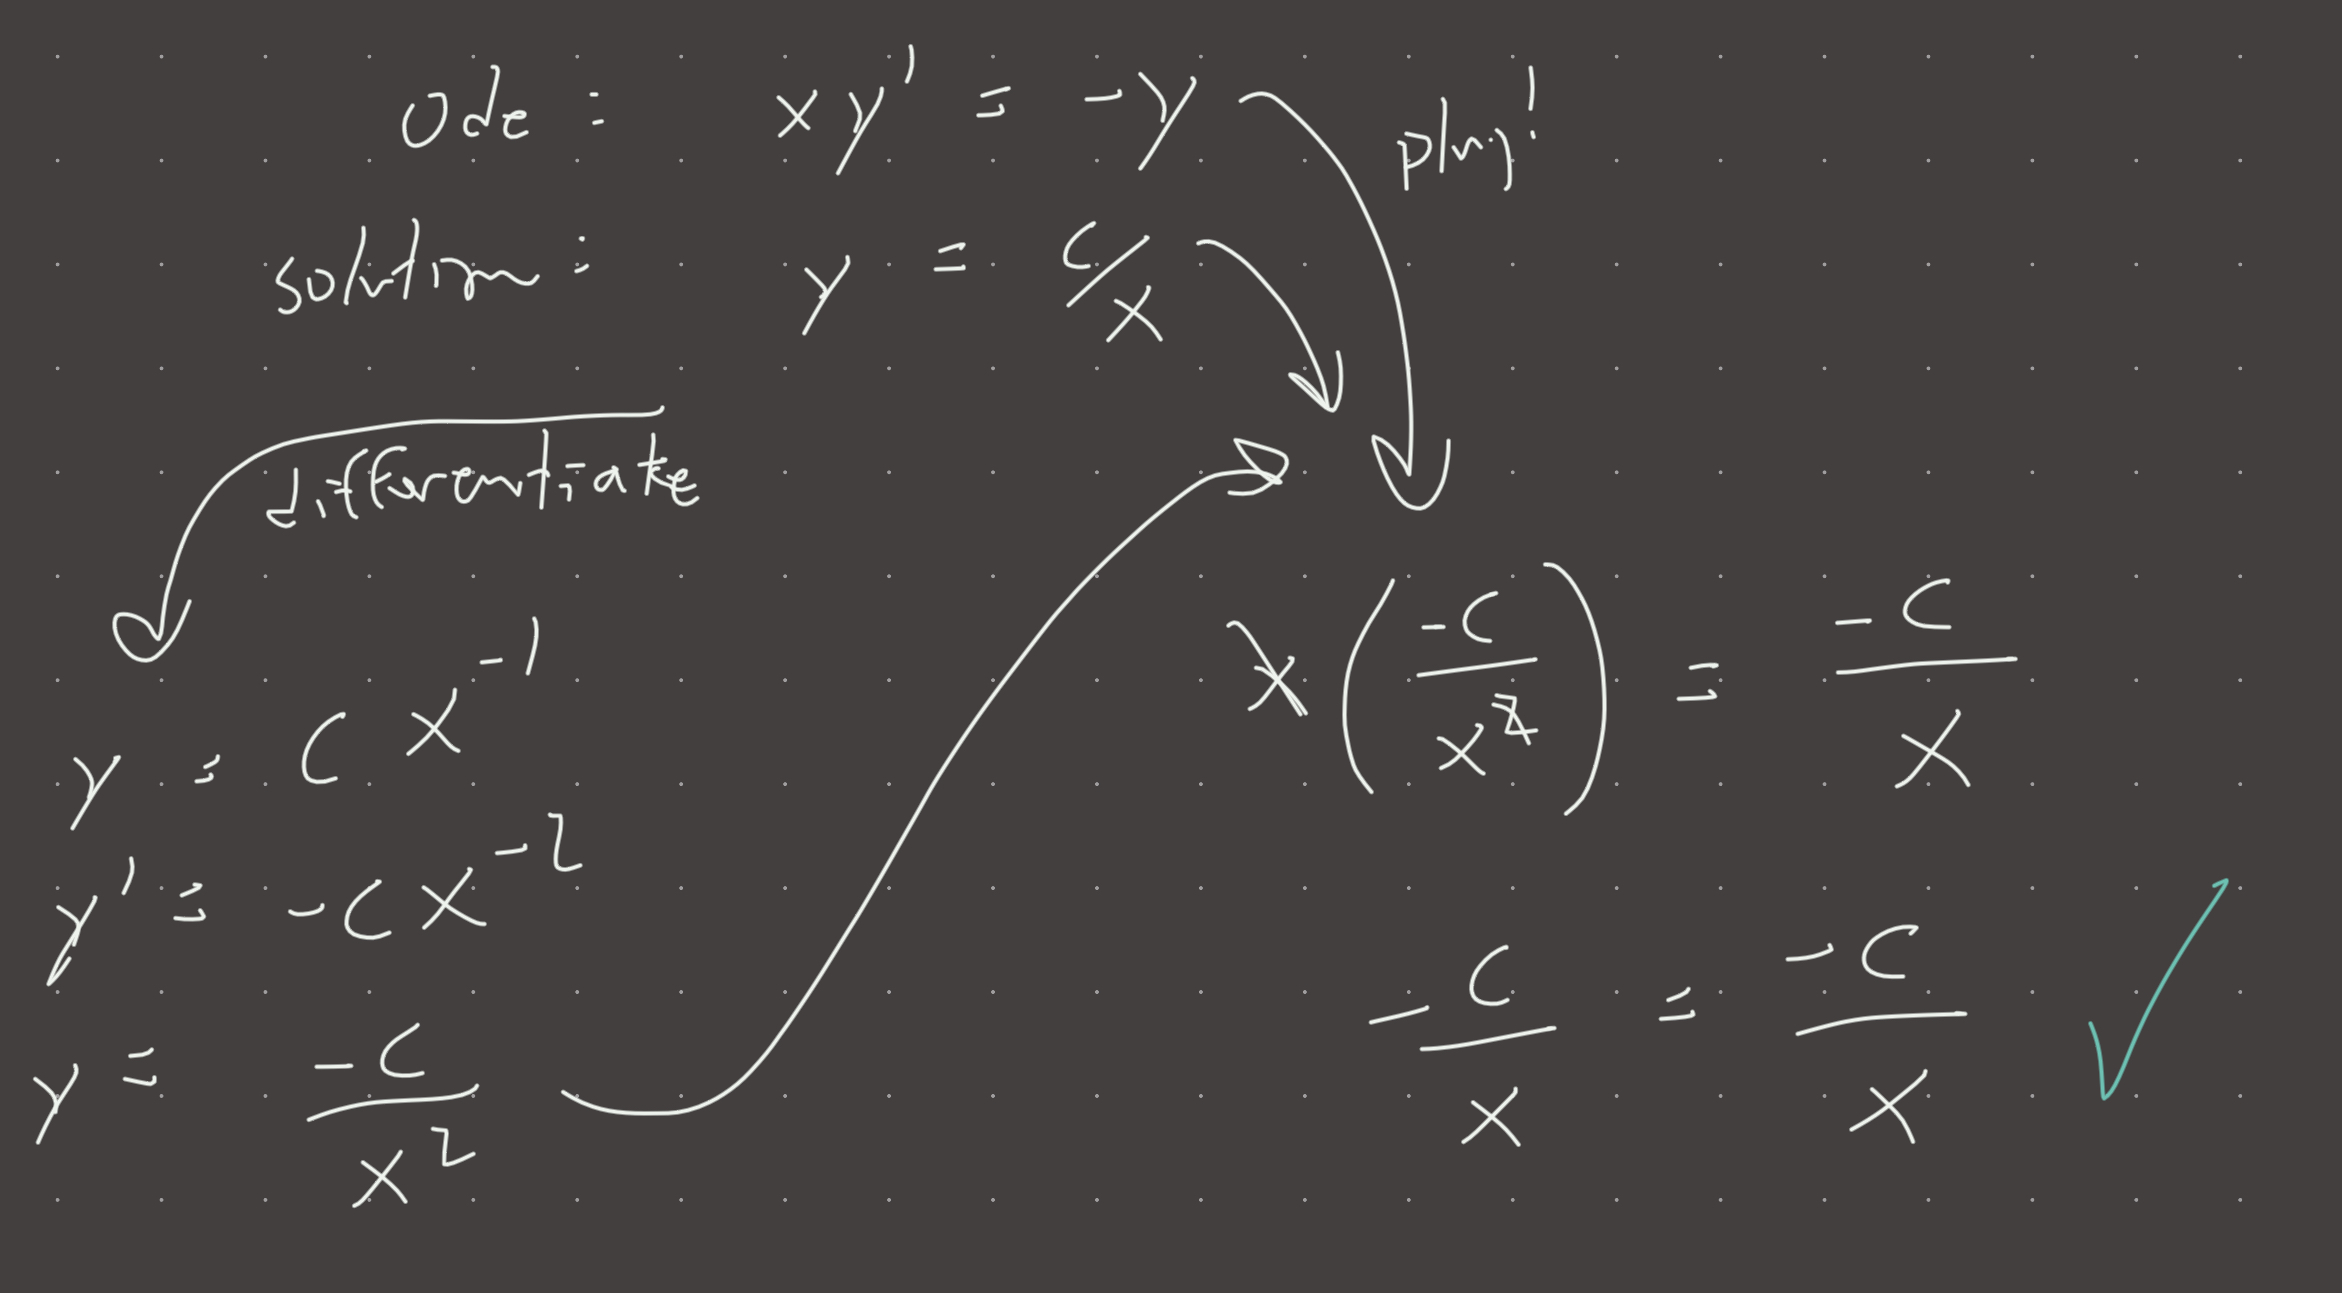 Ode : xy' = -y
plug!
solution : y = c/x
differentiate
y = c x^-1
y' = -c x^-2
y = -c/x^2
x(-c/x^2) = -c/x
-c/x = -c/x ✓